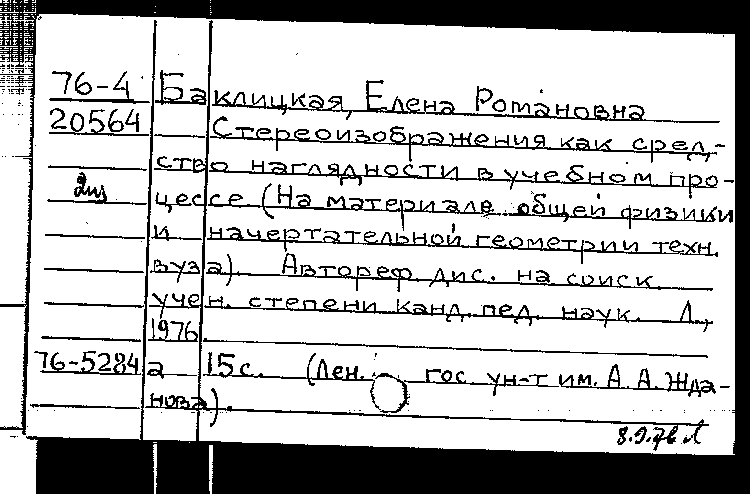 76-4 Баклицкая, Елена Романовна
20564 Стереоизображения как сред-
ство наглядности в учебном про-
цессе (На материале общей физики
и начертательной геометрии техн.
вуза). Автореф. дис. на соиск.
учен. степени канд. пед. наук. Л.,
1976
76-5284а 15 с. (Лен. гос. ун-т им. А. А. Жда-
нова).
8.9.76 Л